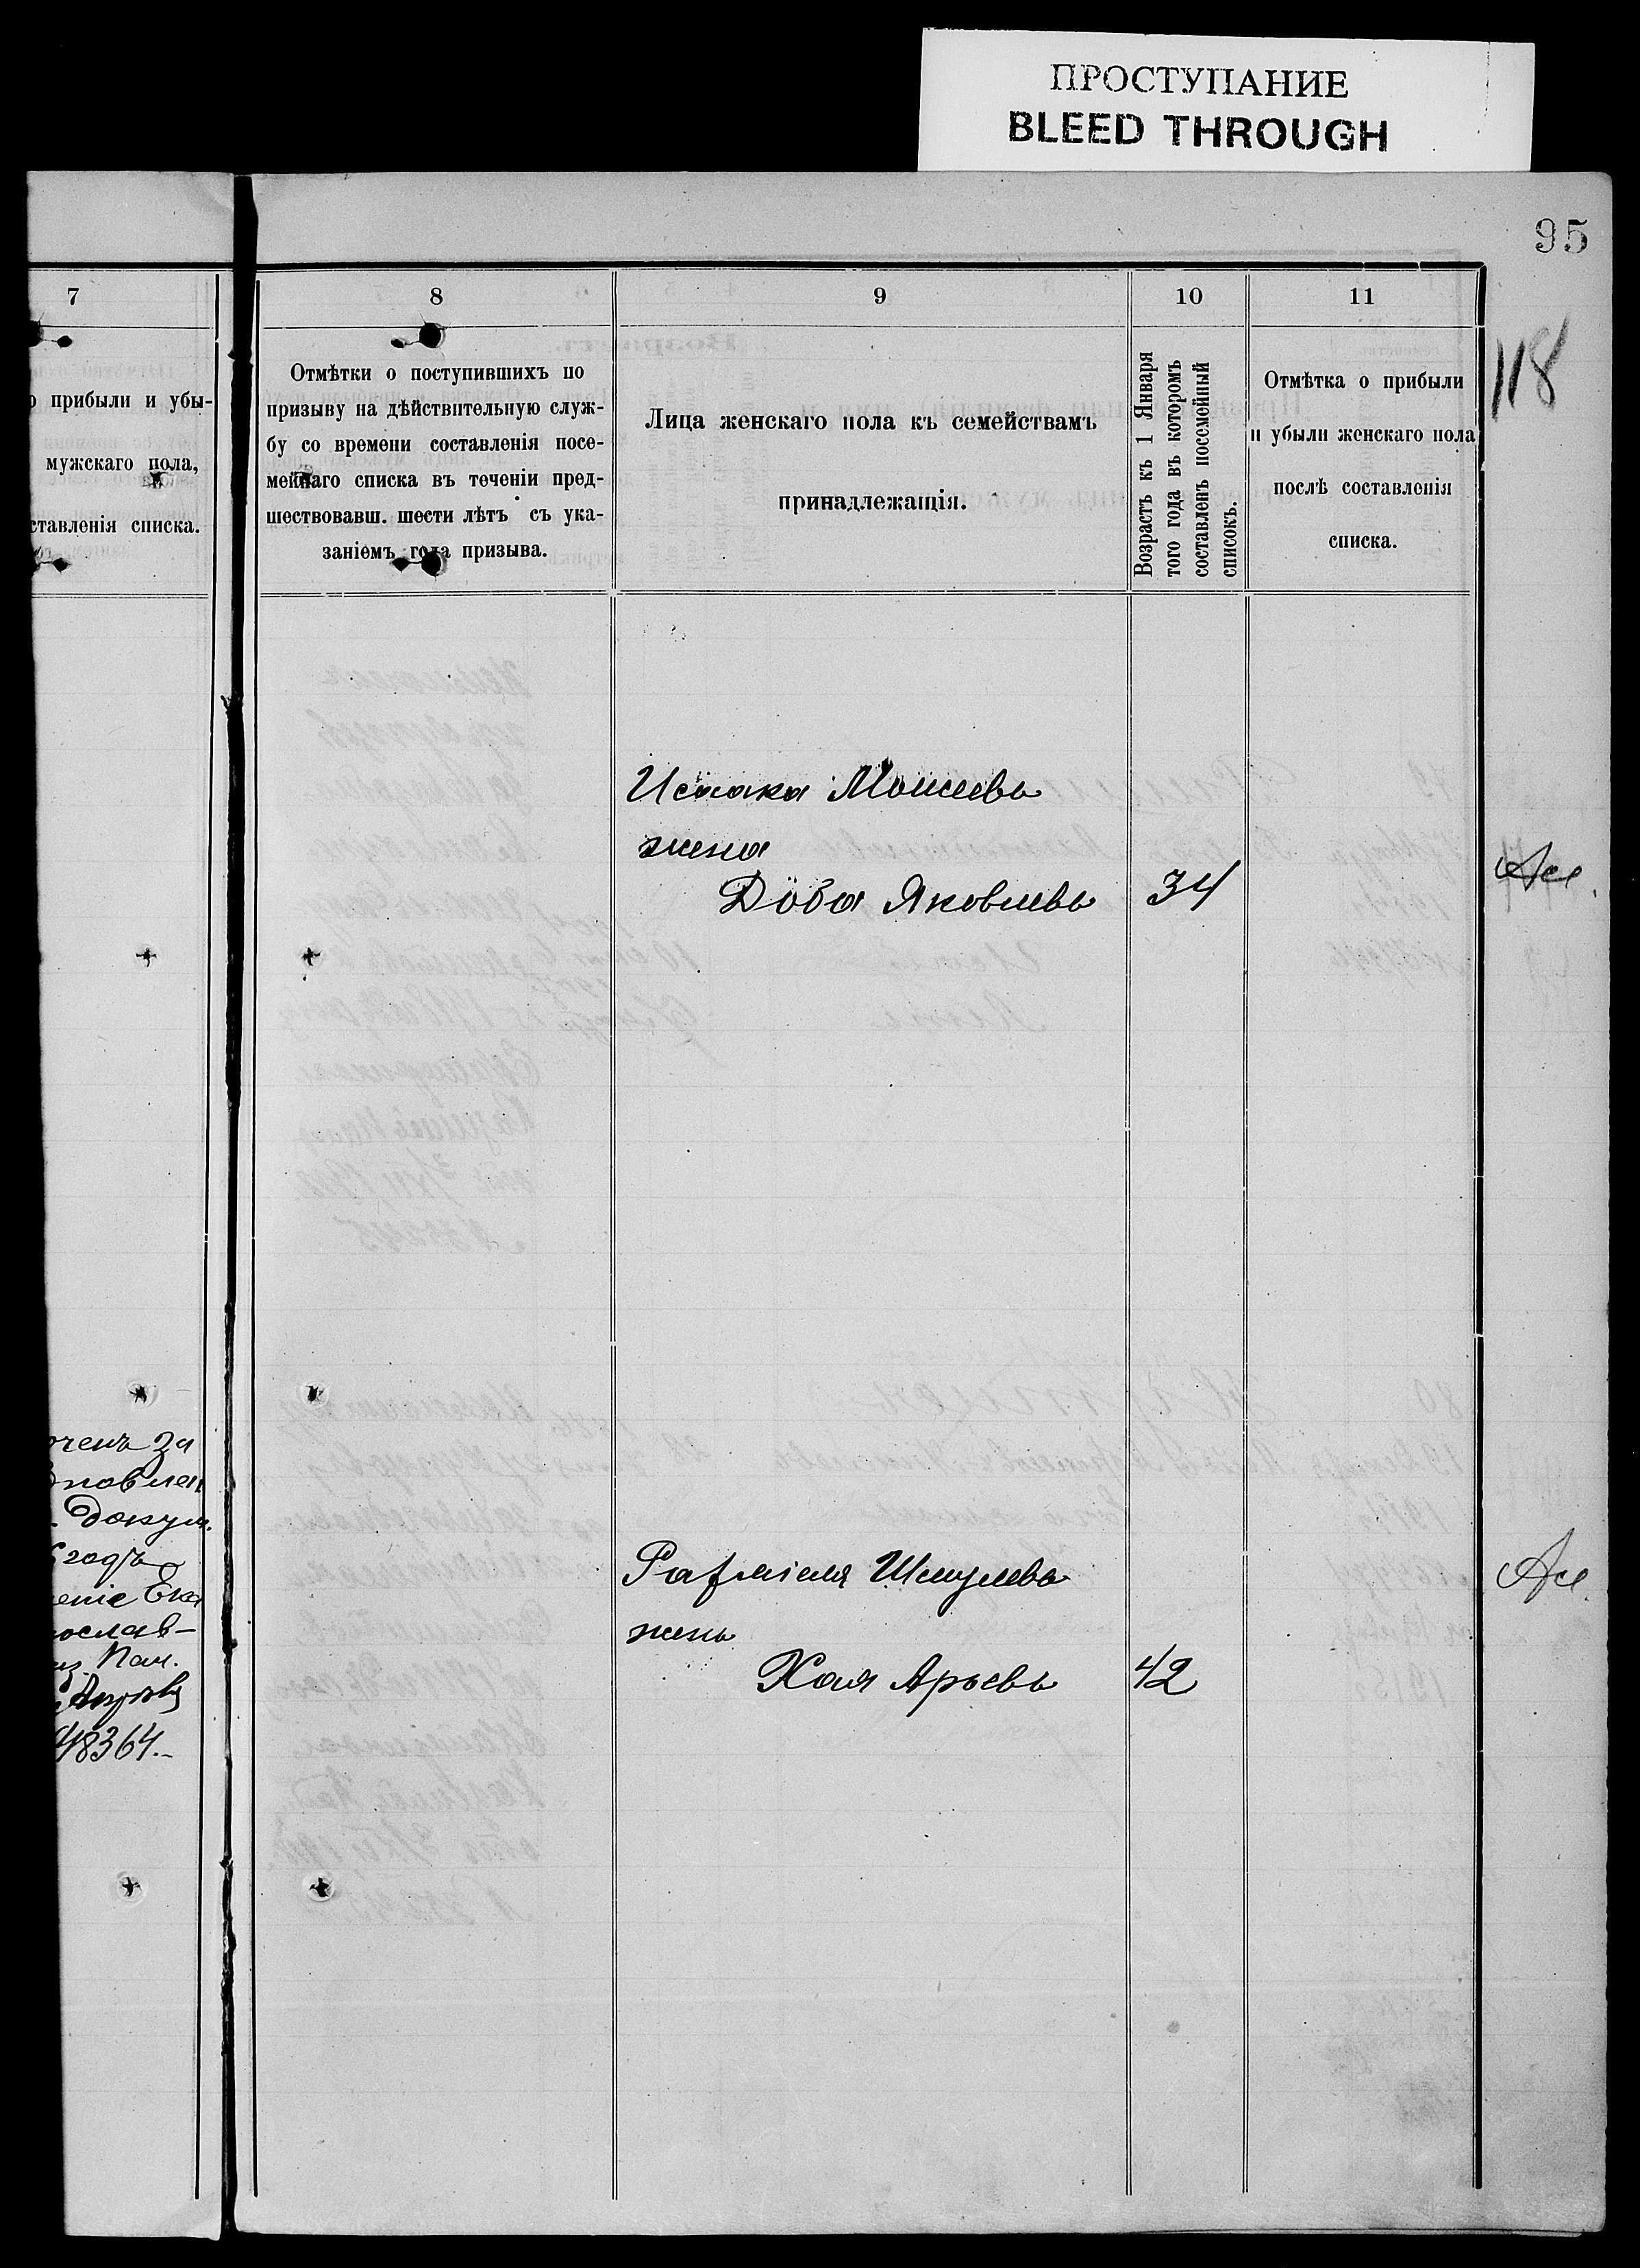 ПРОСТУПАНИЕ
BLEED THROUGH
95
118
7
прибыли и убы-
мужскаго пола,
ставленія списка.
8
Отмѣтки о поступившихъ по
призыву на дѣйствительную служ-
бу со времени составленія посе-
мейнаго списка въ теченіи пред-
шествовавш. шести лѣтъ съ ука-
заніемъ года призыва.
9
Лица женскаго пола къ семействамъ
принадлежащія.
10
Возрастъ къ 1 Января
того года въ которомъ
составленъ посемейный
списокъ.
11
Отмѣтка о прибыли
и убыли женскаго пола
послѣ составленія
списка.
Исаака Мошеева
жена
Доба Яковлева 34
за
докум.
годъ
еніе Ека
ослав-
48364.-
Рафаіеля Шмулева
жена
Хая Арьева 42